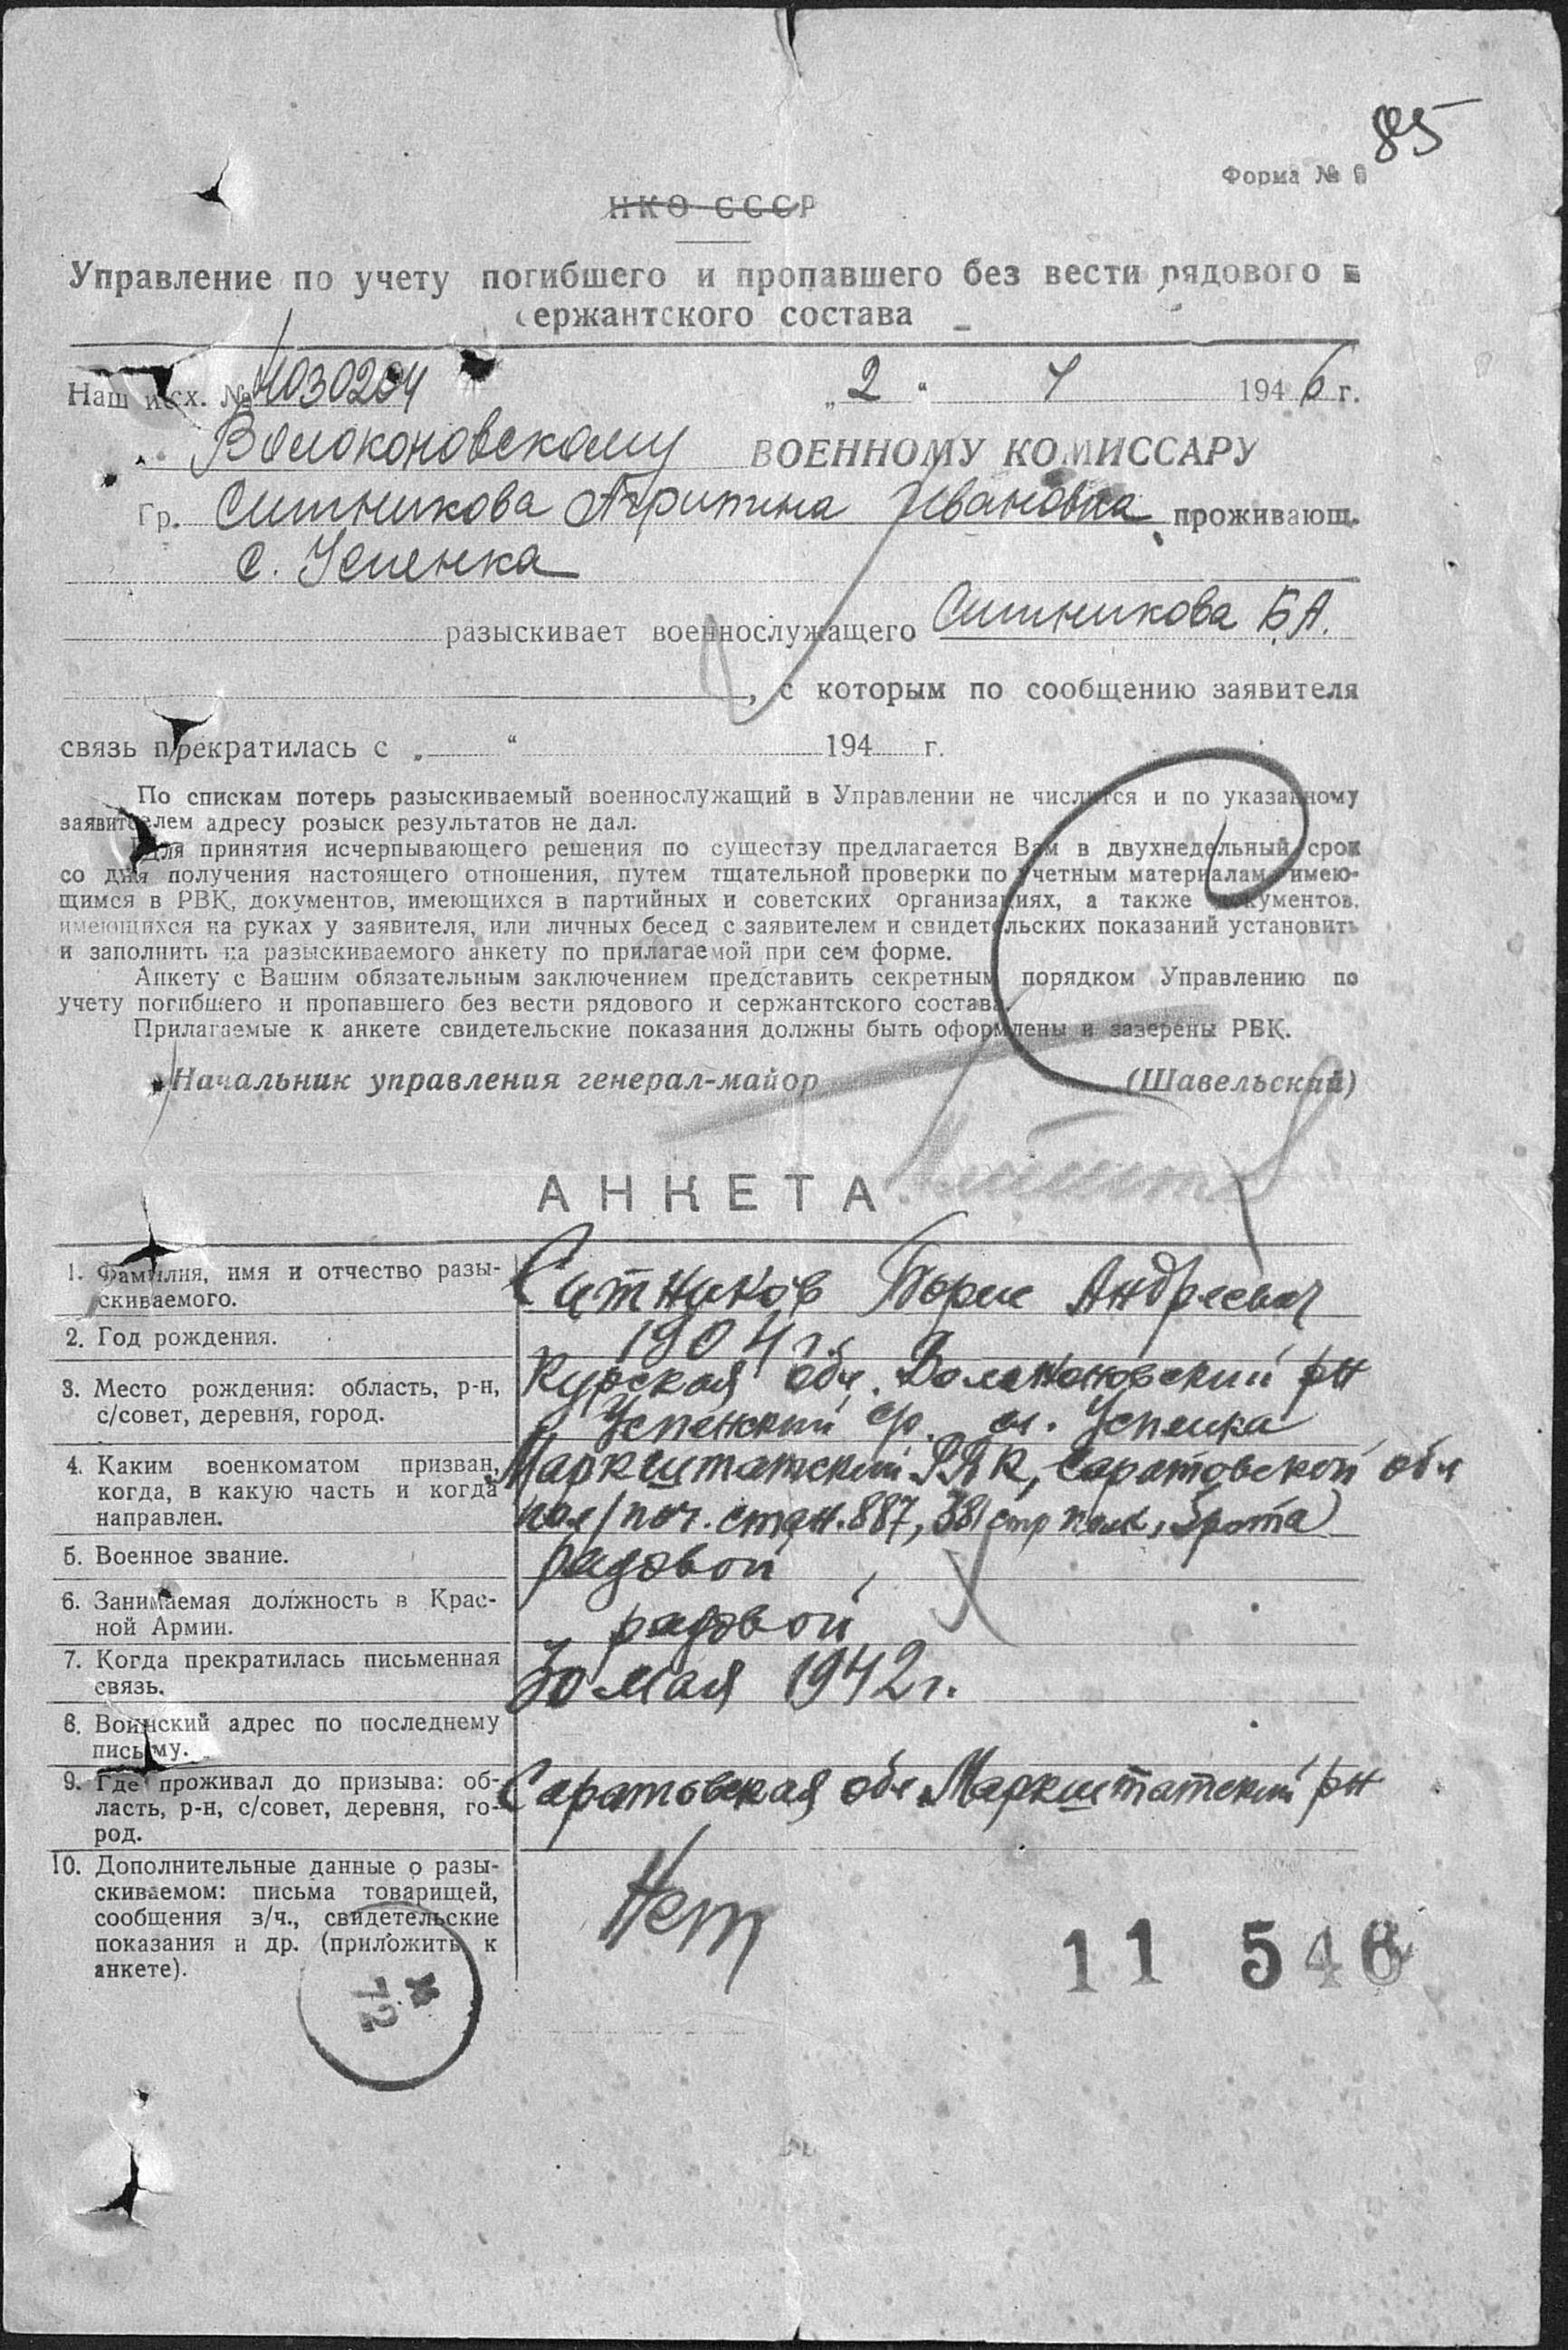 85
Форма № 6
НКО СССР
Управление по учету погибшего и пропавшего без вести рядового и
сержантского состава
Наш исх. № 1030204 „2“ 7 1946 г.
Волоконовскому ВОЕННОМУ КОМИССАРУ
Гр. Ситникова Агрипина Ивановна проживающ.
с. Успенка
разыскивает военнослужащего Ситникова Б.А.
, с которым по сообщению заявителя
связь прекратилась с „ “ 194 г.
По спискам потерь разыскиваемый военнослужащий в Управлении не числится и по указанному
заявителем адресу розыск результатов не дал.
Для принятия исчерпывающего решения по существу предлагается Вам в двухнедельный срок
со дня получения настоящего отношения, путем тщательной проверки по учетным материалам, имею-
щимся в РВК, документов, имеющихся в партийных и советских организациях, а также документов,
имеющихся на руках у заявителя, или личных бесед с заявителем и свидетельских показаний установить
и заполнить на разыскиваемого анкету по прилагаемой при сем форме.
Анкету с Вашим обязательным заключением представить секретным порядком Управлению по
учету погибшего и пропавшего без вести рядового и сержантского состава.
Прилагаемые к анкете свидетельские показания должны быть оформлены и заверены РВК.
Начальник управления генерал-майор (Шавельский)
АНКЕТА
1. Фамилия, имя и отчество разы-
скиваемого.
Ситников Борис Андреевич
2. Год рождения.
1904 г.
3. Место рождения: область, р-н,
с/совет, деревня, город.
Курская обл. Волоконовский рн
Успенский с/с. с. Успенка
4. Каким военкоматом призван,
когда, в какую часть и когда
направлен.
Марксштатский РВК, Саратовской обл
пол/поч. стан. 887, 381 стр полк, 3 рота
5. Военное звание.
рядовой
6. Занимаемая должность в Крас-
ной Армии.
рядовой
7. Когда прекратилась письменная
связь.
30 мая 1942 г.
8. Воинский адрес по последнему
письму.
9. Где проживал до призыва: об-
ласть, р-н, с/совет, деревня, го-
род.
Саратовская обл Марксштатский рн
10. Дополнительные данные о разы-
скиваемом: письма товарищей,
сообщения з/ч., свидетельские
показания и др. (приложить к
анкете).
Нет
11 546
72